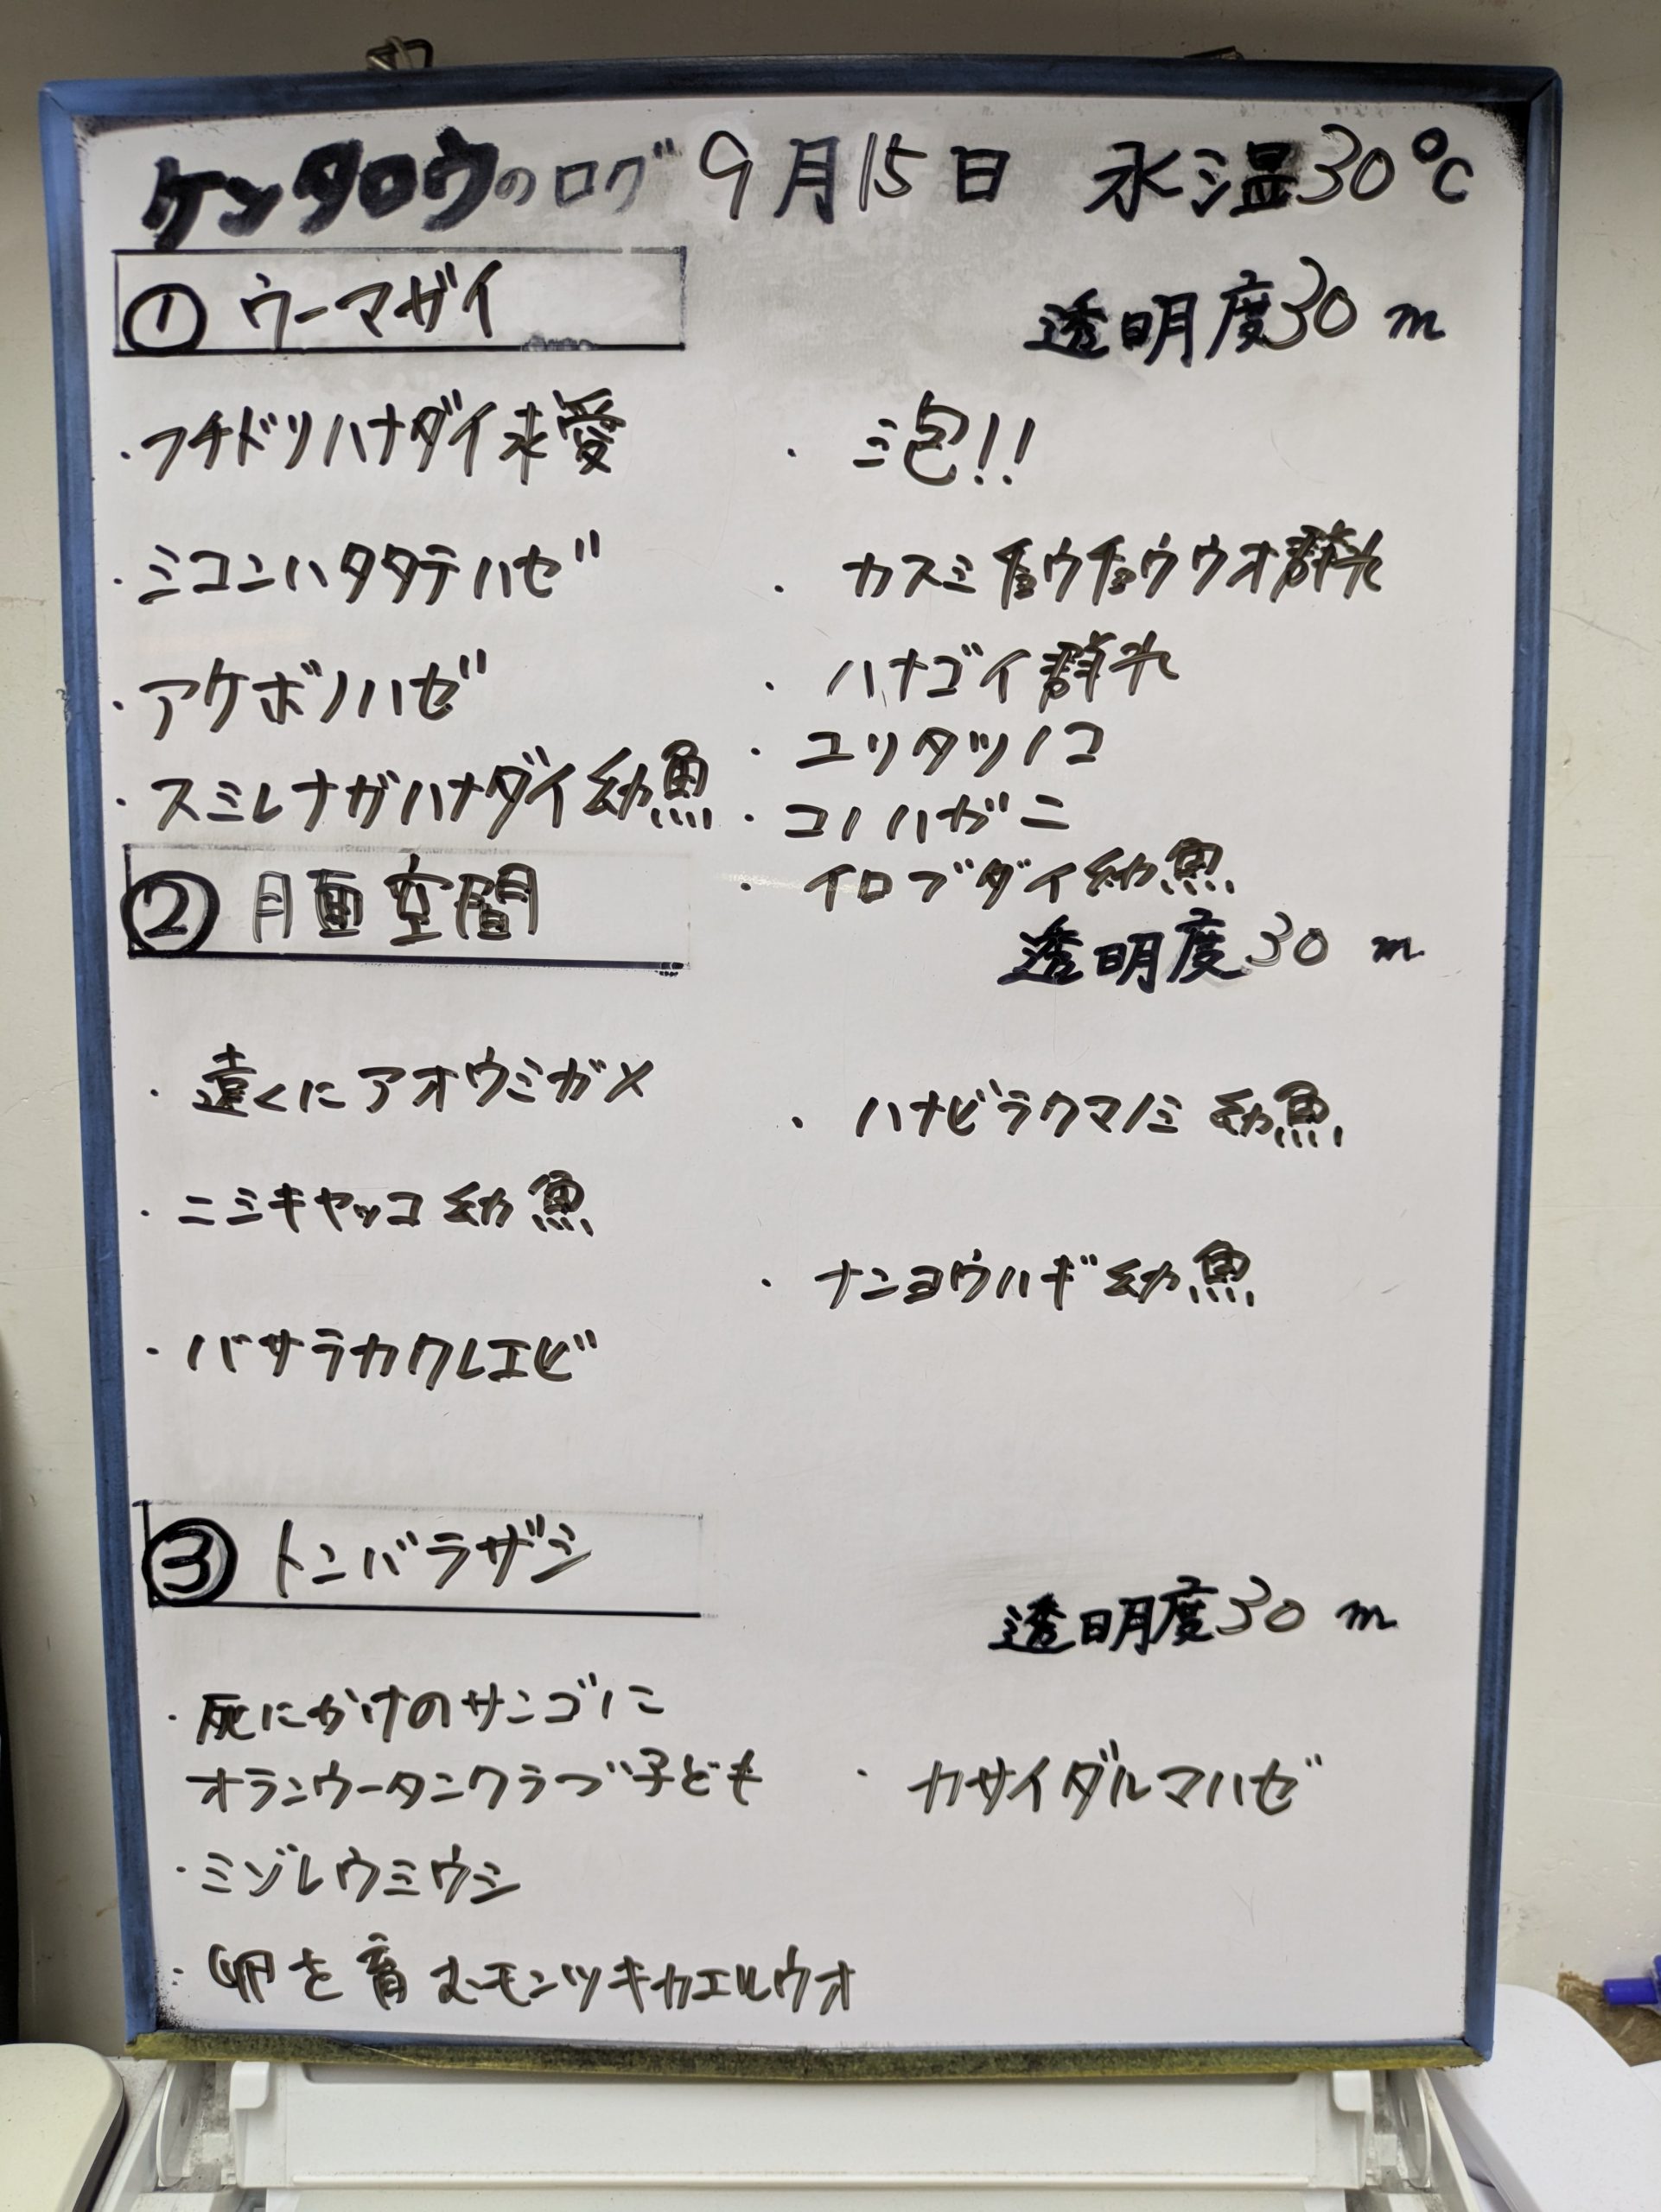 ケンタロウのログ 9月15日 水温30℃
① ウーマガイ
透明度30m
・フチドリハナダイ求愛
・ミコンハタタテハゼ
・アケボノハゼ
・スミレナガハナダイ幼魚
・泡!!
・カスミチョウチョウウオ群れ
・ハナゴイ群れ
・ユリタツノコ
・コノハガニ
・イロブダイ幼魚
② 月面空間
透明度30m
・遠くにアオウミガメ
・ニシキヤッコ幼魚
・バサラカクレエビ
・ハナビラクマノミ 幼魚
・ナンヨウハギ幼魚
③ トンバラザシ
透明度30m
・死にかけのサンゴに
オランウータンクラブ子ども
・ミゾレウミウシ
・卵を育むモンツキカエルウオ
・カサイダルマハゼ